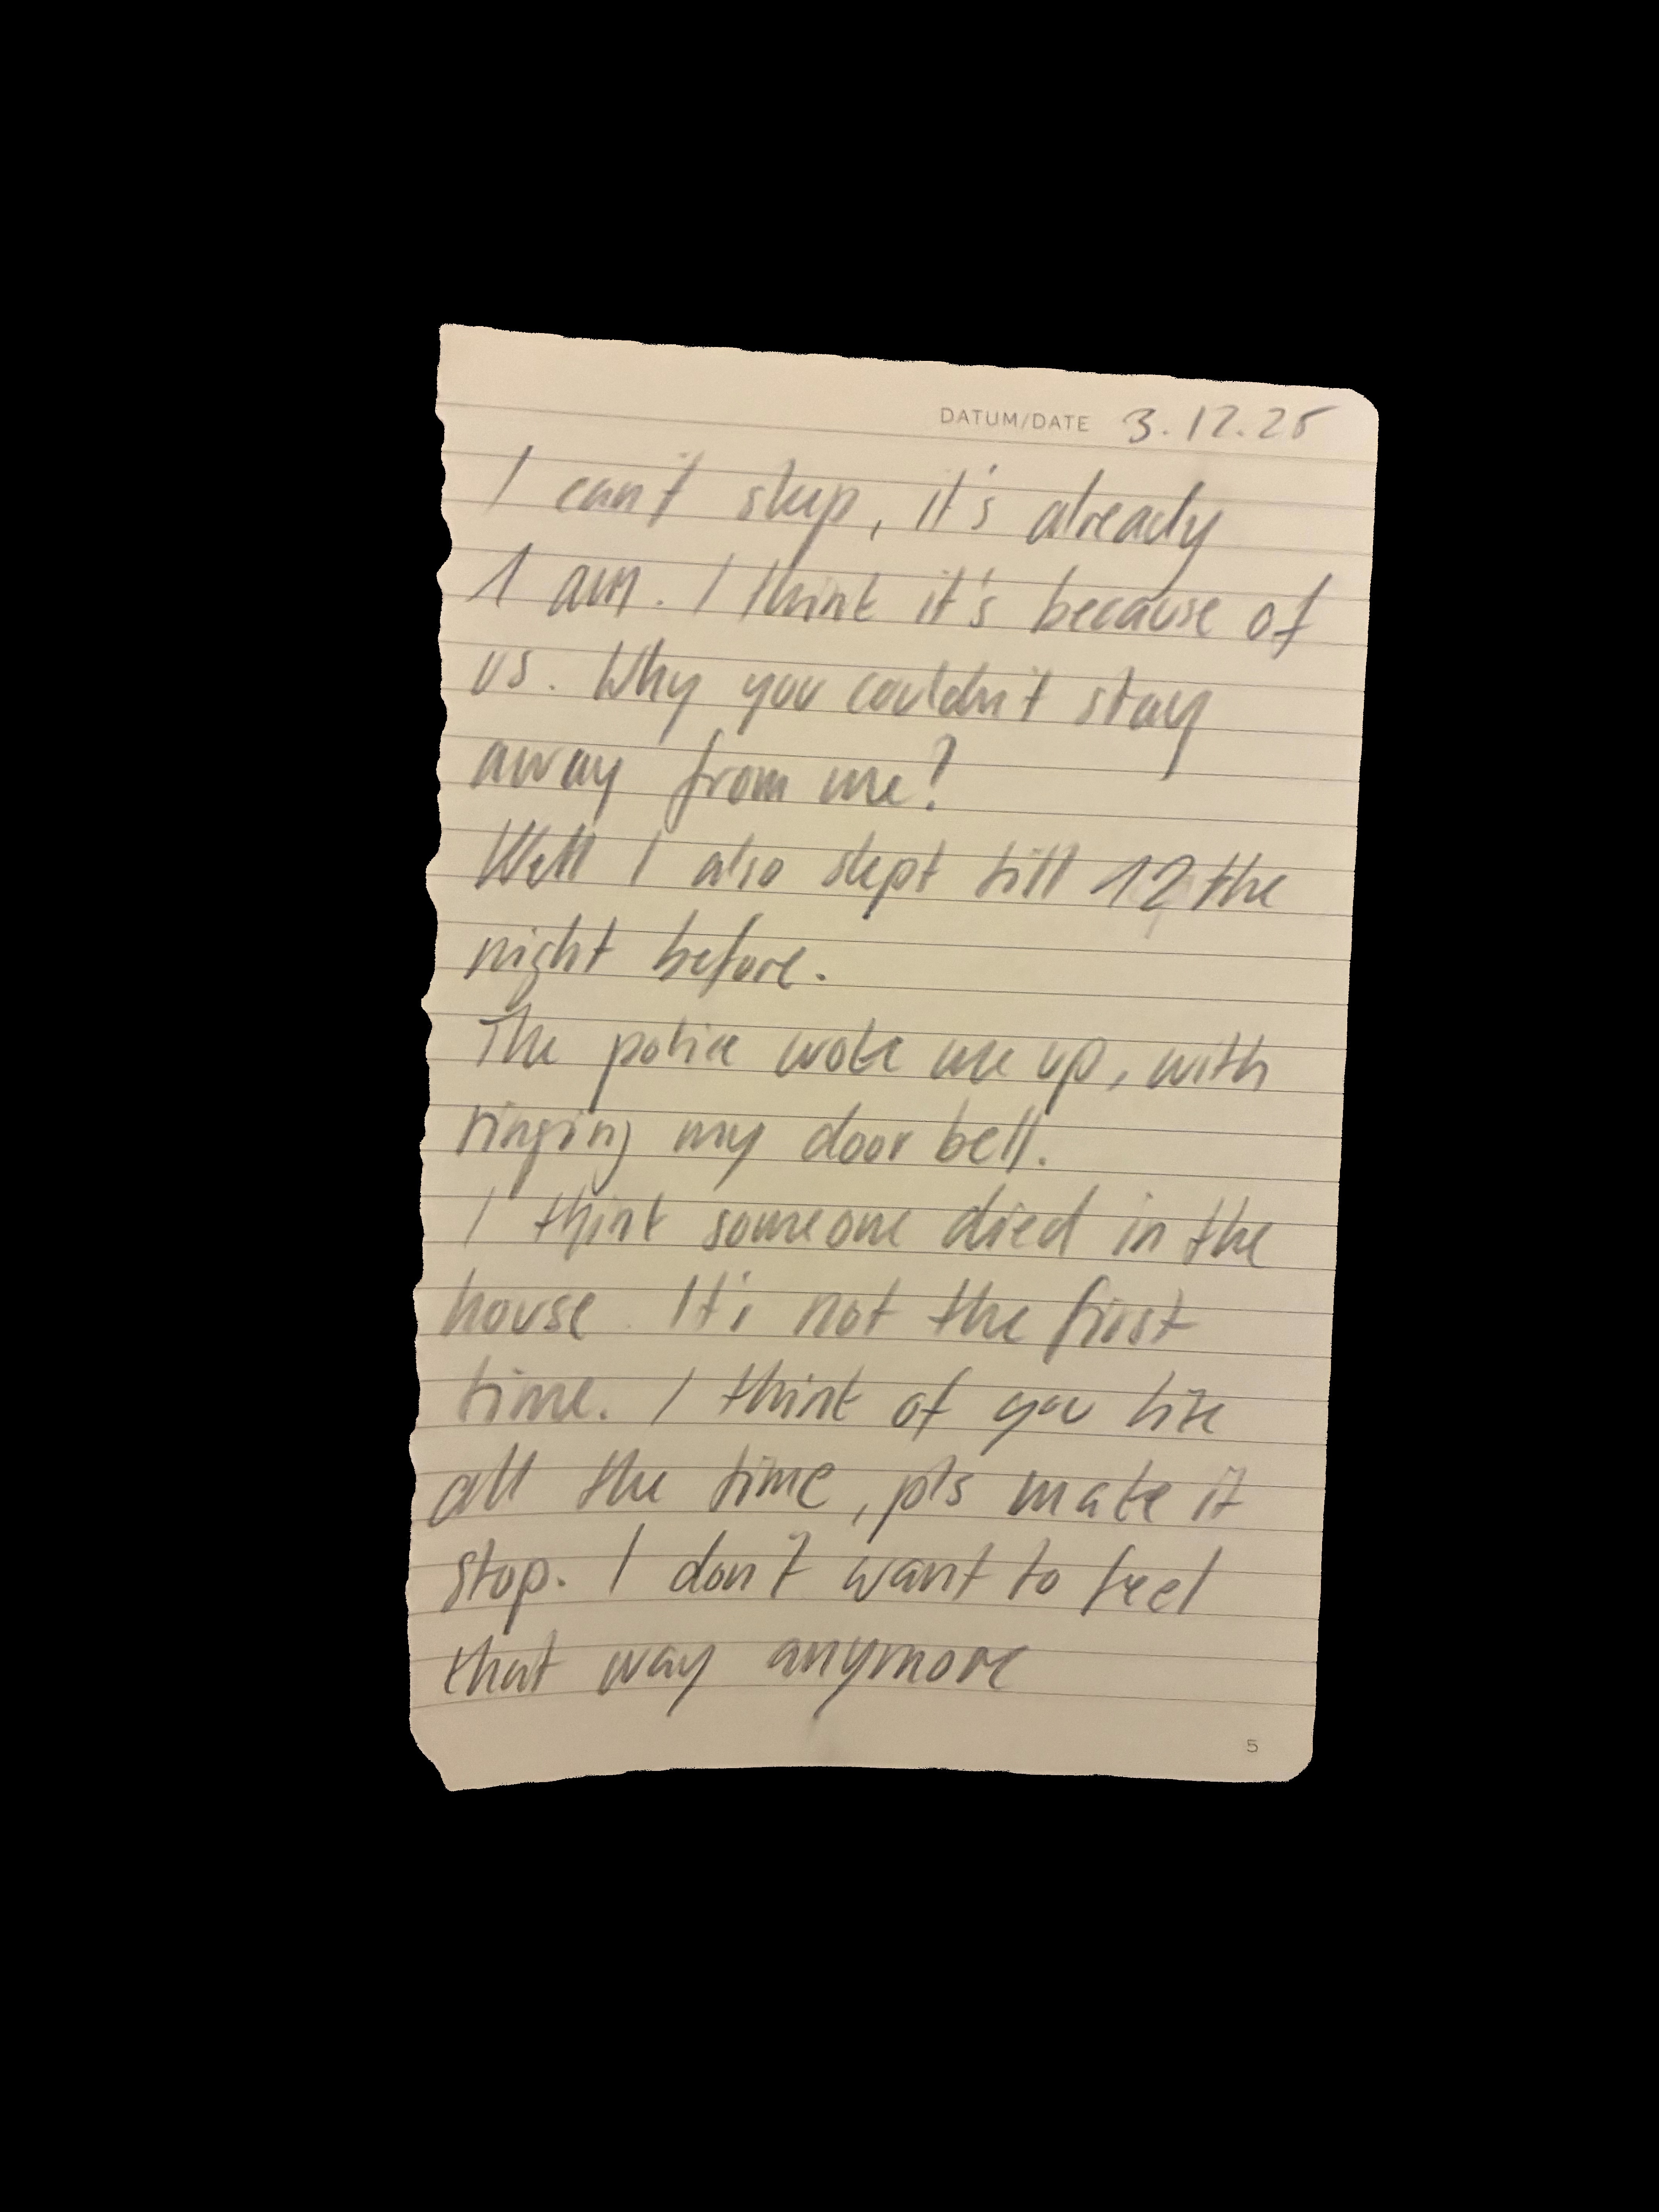 DATUM/DATE 3.12.25
I can't sleep, it's already
1 am. I think it's because of
us. Why you couldn't stay
away from me?
Well I also slept till 12 the
night before.
The police woke me up, with
ringing my door bell.
I think someone died in the
house. It's not the first
time. I think of you like
all the time, pls make it
stop. I don't want to feel
that way anymore
5